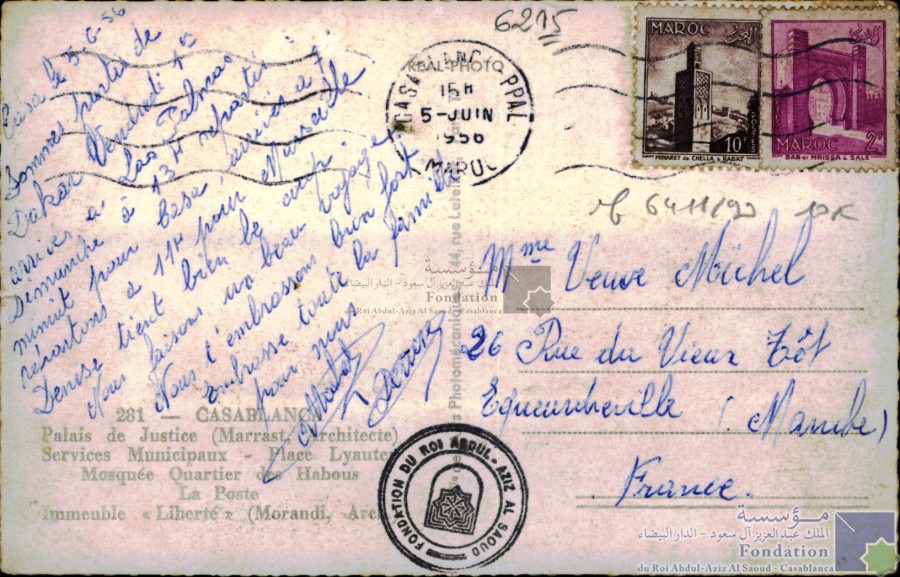 6215
Casa le 5-6-56
Sommes partis de
Dakar Vendredi 1er
arrivés à Las Palmas
Dimanche à 13H repartis à
minuit pour Casa arrivés à 7H
repartons à 17H pour Marseille
Denise tient bien le coup
Nous faisons un beau voyage
Nous t'embrassons bien fort
Embrasse toute la famille
pour nous
Denise
CASABLANCA PPAL
15H
5-JUIN
1956
MAROC
REAL-PHOTO
MAROC
المغرب
10F
MINARET de CHELLA à RABAT
المغرب
MAROC
2F
BAB el MRISSA à SALE
6411/90 10K
Mme Veuve Michel
26 Rue du Vieux Tôt
Equeurdreville (Manche)
France.
مؤسسة
الملك عبد العزيز آل سعود - الدار البيضاء
Fondation
du Roi Abdul-Aziz Al Saoud - Casablanca
Photomécaniques, 44, rue Letellier
281 - CASABLANCA
Palais de Justice (Marrast, Architecte)
Services Municipaux - Place Lyautey
Mosquée Quartier des Habous
La Poste
Immeuble « Liberté » (Morandi, Arc
FONDATION DU ROI ABDUL-AZIZ AL SAOUD
مؤسسة
الملك عبد العزيز آل سعود - الدار البيضاء
Fondation
du Roi Abdul-Aziz Al Saoud - Casablanca